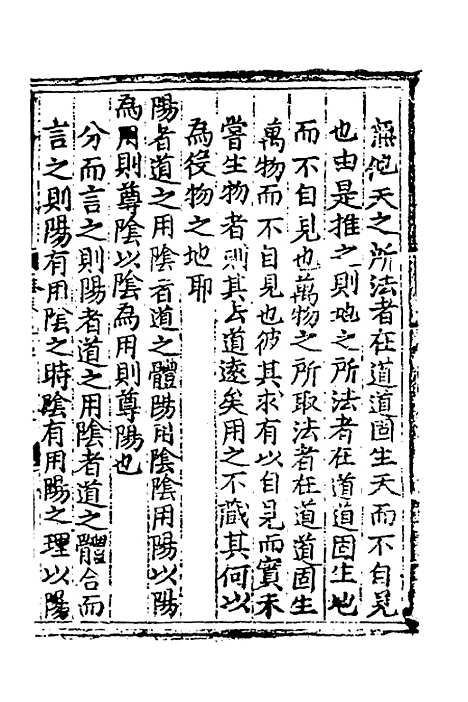 無他天之所法者在道道固生天而不自見
也由是推之則地之所法者在道道固生地
而不自見也萬物之所取法者在道道固生
萬物而不自見也彼其求有以自見而實未
嘗生物者則其去道遠矣用之不藏其何以
為役物之地耶
陽者道之用陰者道之體陽用陰陰用陽以陽
為用則尊陰以陰為用則尊陽也
分而言之則陽者道之用陰者道之體合而
言之則陽有用陰之時陰有用陽之理以陽